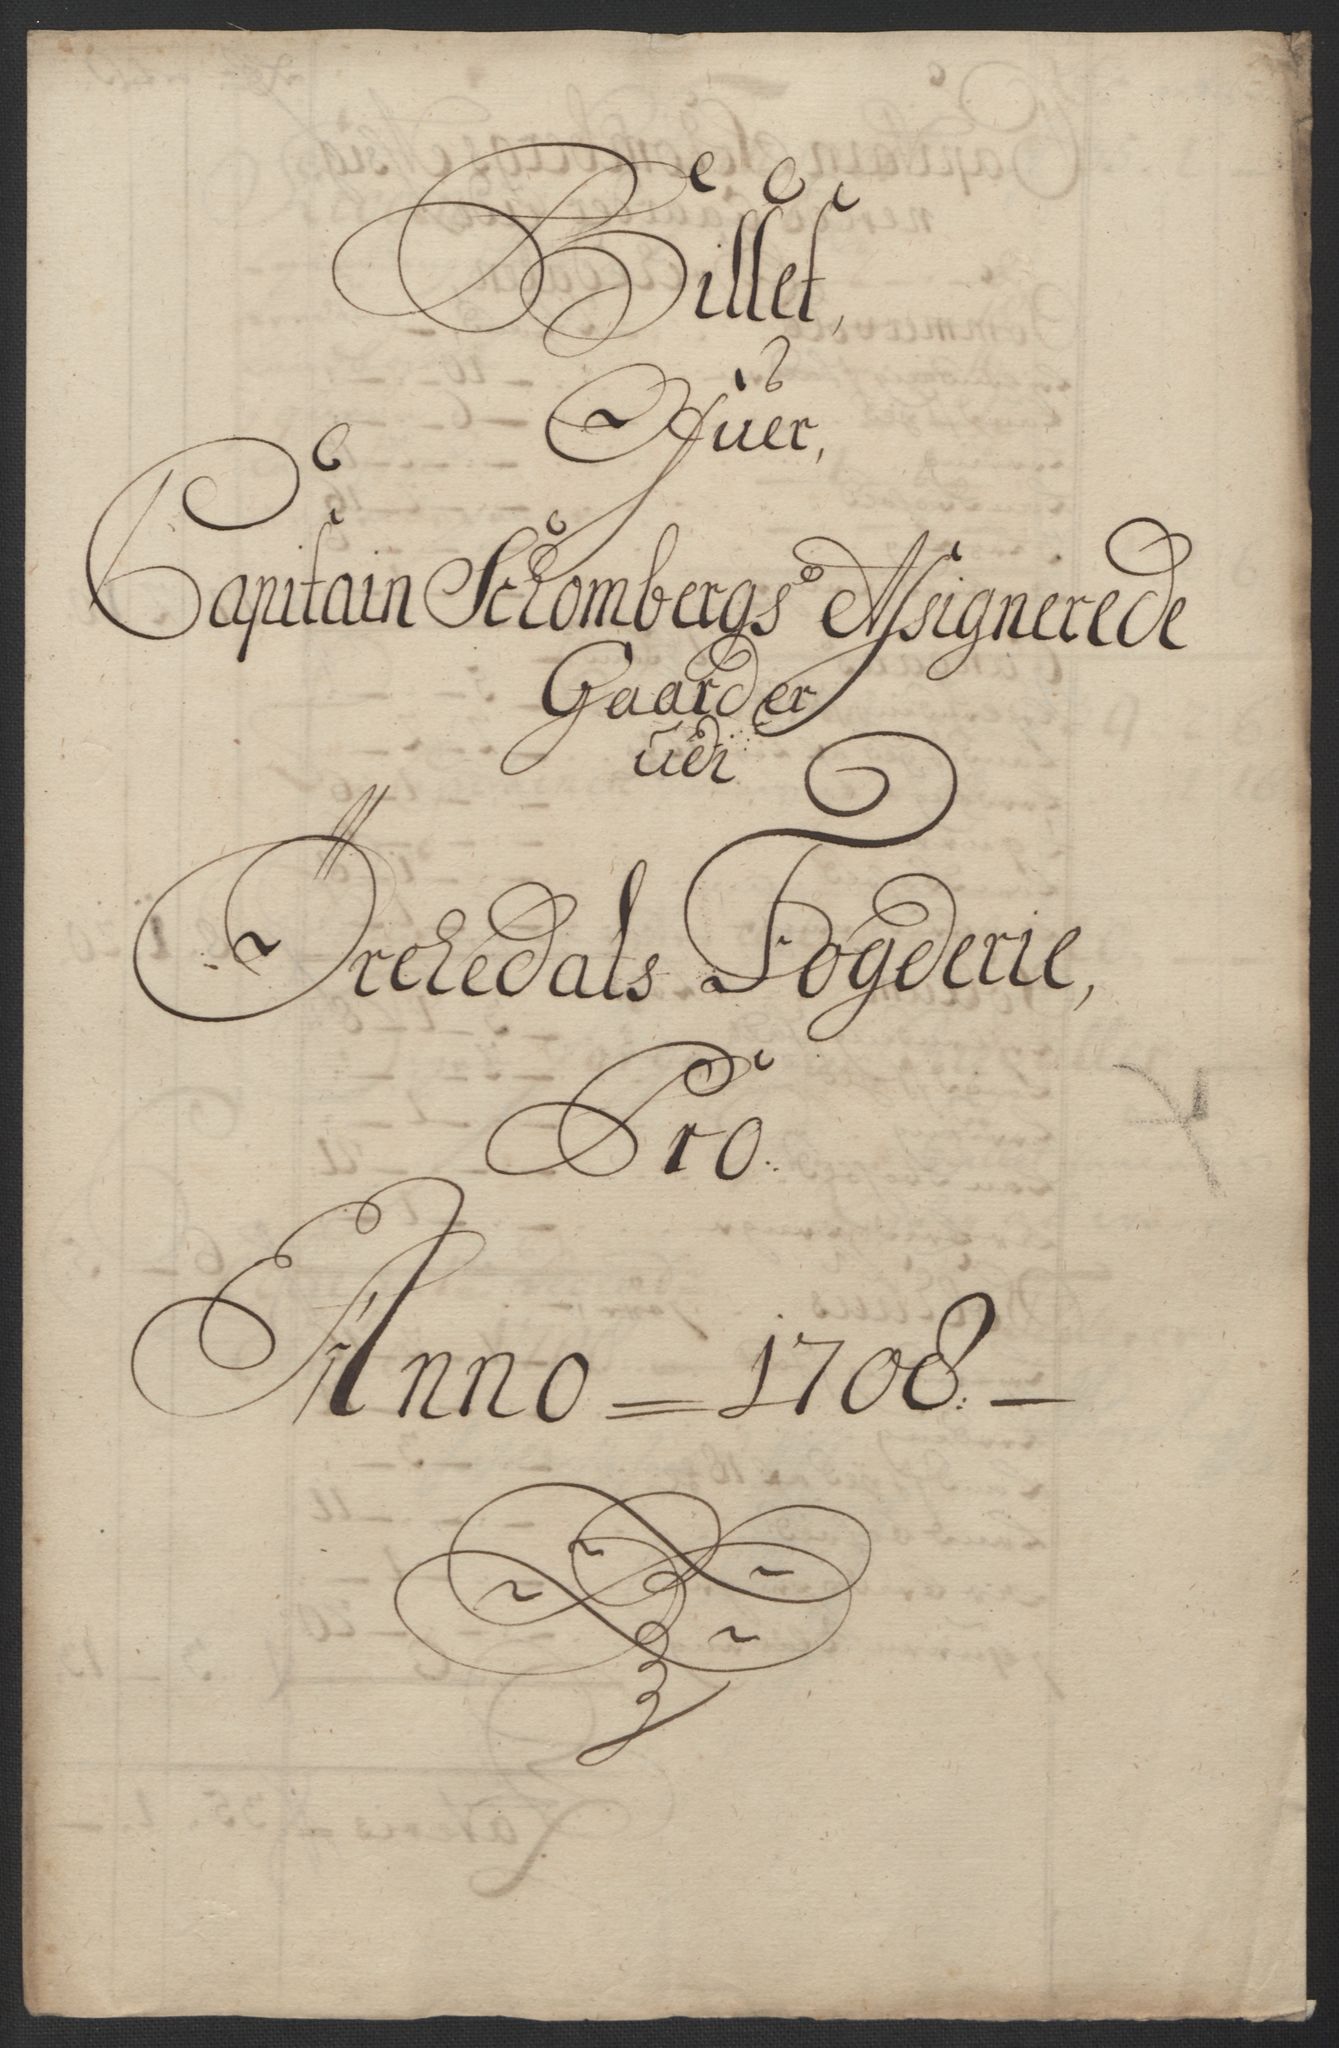 Billet,
Ofuer,
Capitain Schombergs Assignerede
Gaarder
udi
Orchedals Fogderie,
Pro.
Anno = 1708. —